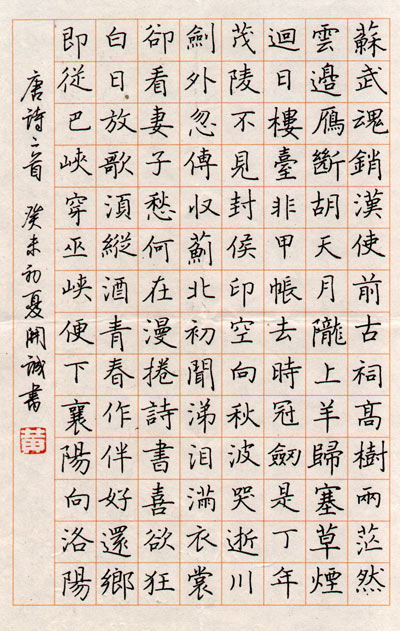 蘇武魂銷漢使前古祠髙樹兩茫然
雲邊鴈斷胡天月隴上羊歸塞草煙
迴日樓臺非甲帳去時冠劒是丁年
茂陵不見封侯印空向秋波哭逝川
劍外忽傳収薊北初聞涕泪滿衣裳
卻看妻子愁何在漫捲詩書喜欲狂
白日放歌湏縱酒青春作伴好還鄉
即從巴峽穿巫峽便下襄陽向洛陽
唐詩二首 癸未初夏開誠書
黃